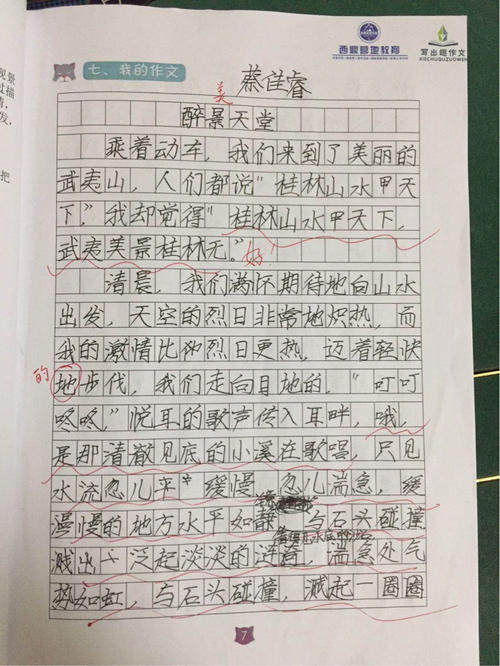 西郾营地教育
写出趣作文
XIECHUQUZUOWEN
七、我的作文
蔡佳睿
美
醉景天堂
乘着动车，我们来到了美丽的
武夷山，人们都说"桂林山水甲天
下，"我却觉得"桂林山水甲天下，
武夷美景桂林无。"好！
清晨，我们满怀期待地向山水
出发，天空的烈日非常地炽热，而
我的激情比他烈日更热，迈着轻快
的
地步伐，我们走向目地的，"叮叮
咚咚"悦耳的歌声传入耳畔，哦，
是那清澈见底的小溪在歌唱，只见
水流忽儿平 缓慢 忽儿湍急，缓
漫慢的地方水平如静 与石头碰撞
溅出 泛起淡淡的涟漪，湍急处气
势如虹，与石头碰撞，溅起一圈圈
7